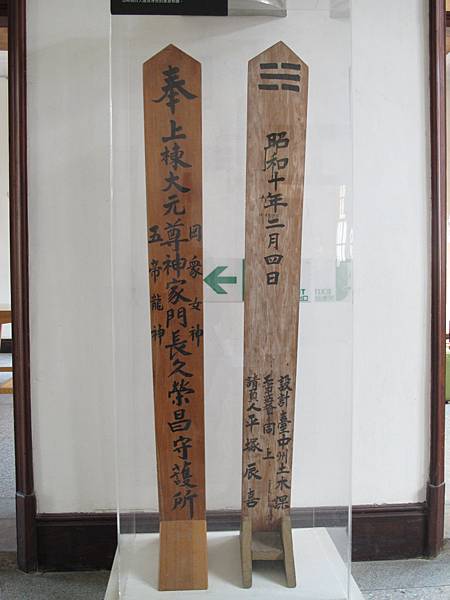 奉上棟大元尊神家門長久榮昌守護所
罔象女神
五帝龍神
昭和十年二月四日
設計臺中州土木課
仝上
請負人平塚辰喜